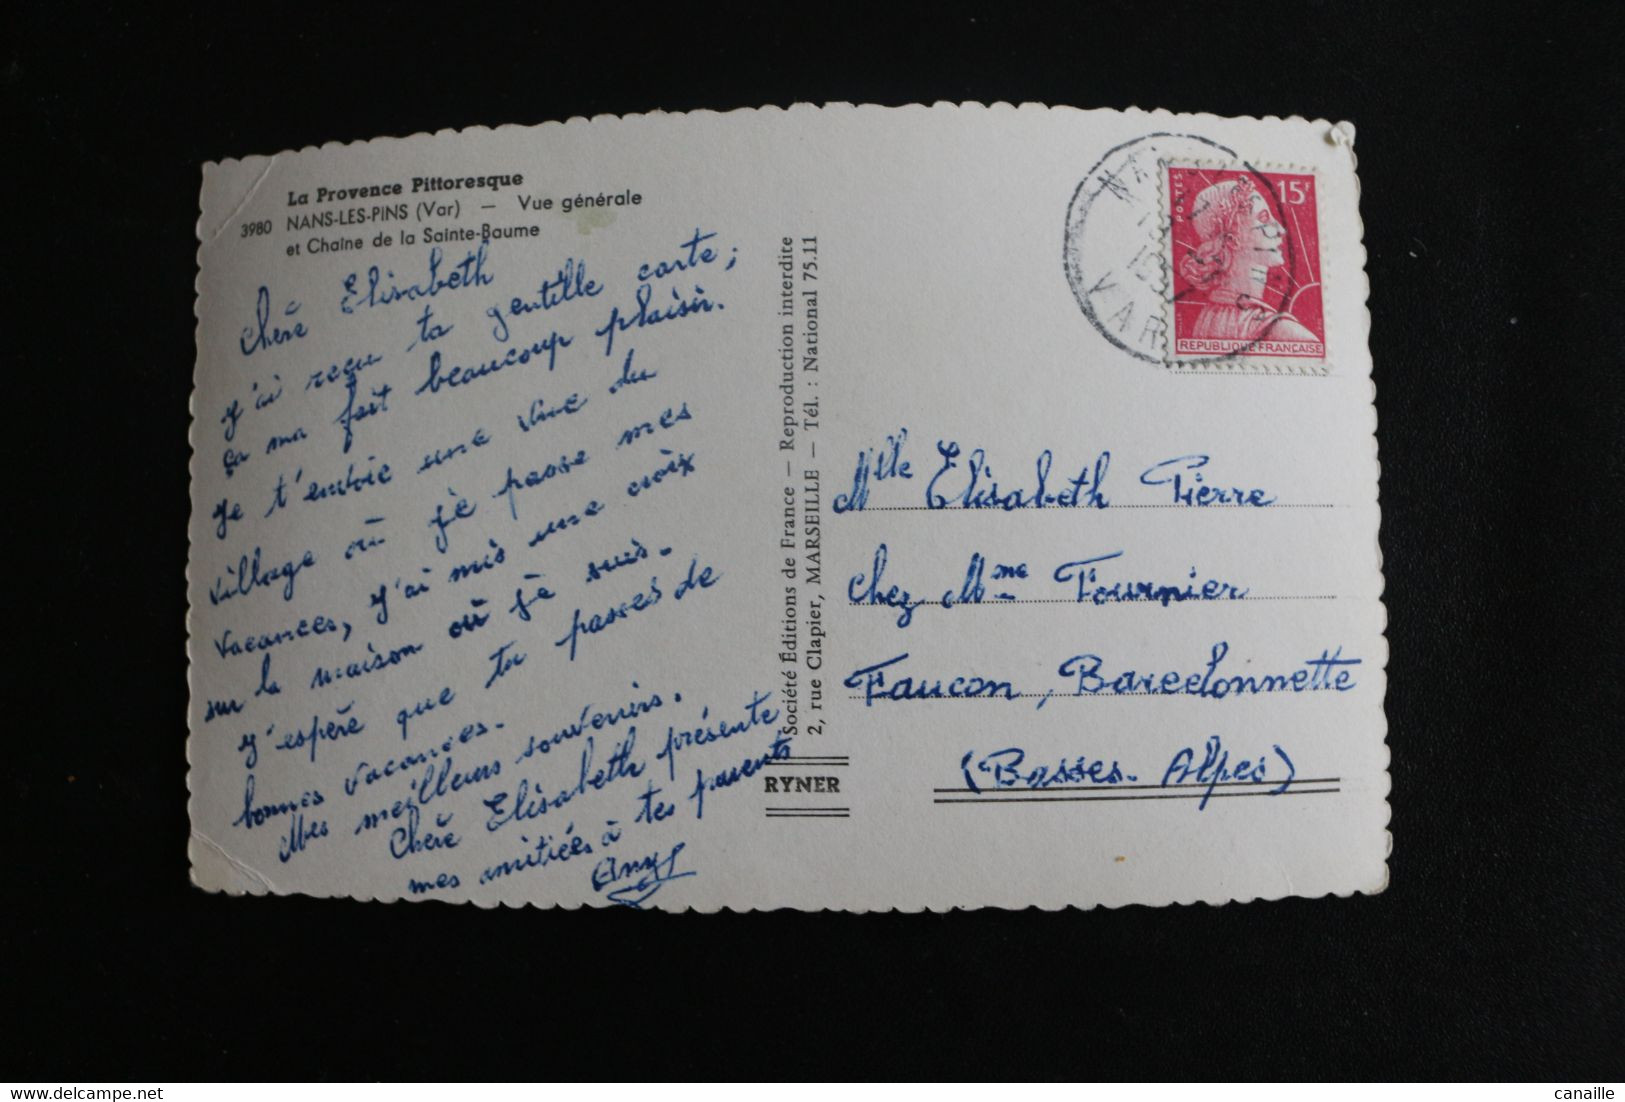 La Provence Pittoresque
3980 NANS-LES-PINS (Var) — Vue générale
et Chaîne de la Sainte-Baume
Chère Elisabeth
j'ai reçu ta gentille carte;
ça ma fait beaucoup plaisir.
Je t'envoie une vue du
village où je passe mes
vacances, j'ai mis une croix
sur la maison où je suis.
J'espère que tu passes de
bonnes vacances.
Mes meilleurs souvenirs.
Chère Elisabeth présente
mes amitiées à tes parents
Any
Société Éditions de France — Reproduction interdite
2, rue Clapier, MARSEILLE — Tél. : National 75.11
RYNER
POSTES
15F
REPUBLIQUE FRANÇAISE
VAR
Mlle Elisabeth Pierre
chez Mme Fournier
Faucon, Barcelonnette
(Basses-Alpes)
canaille